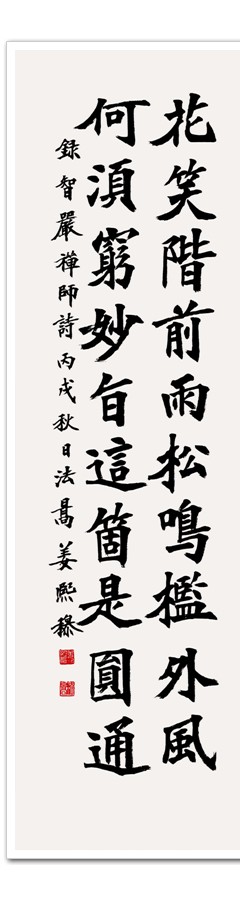 花笑階前雨松鳴檻外風
何須窮妙旨這箇是圓通
錄智嚴禪師詩丙戌秋日法暠姜熙穆